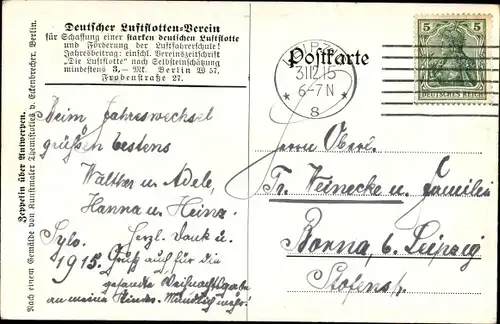 Deutscher Luftflotten-Verein
für Schaffung einer starken deutschen Luftflotte
und Förderung der Luftfahrerschule!
Jahresbeitrag: einschl. Vereinszeitschrift
"Die Luftflotte" nach Selbsteinschätzung
mindestens 3,— Mk. Berlin W 57,
Frobenstraße 27.
Nach einem Gemälde von Kunstmaler Themistokles v. Eckenbrecher, Berlin.
Zeppelin über Antwerpen.
Beim Jahreswechsel
grüßen bestens
Walther u. Adele,
Hanna u. Heinz.
Sylv. Herzl. Dank u.
1915. Gruß auch für die
gesandte Weihnachtsgabe
an meine Kinder. Mündlich mehr!
Postkarte
31.12.15
6-7 N
* 8 *
5 5
DEUTSCHES REICH
Herrn Oberl.
Fr. Weinecke u. Familie
Borna, b. Leipzig